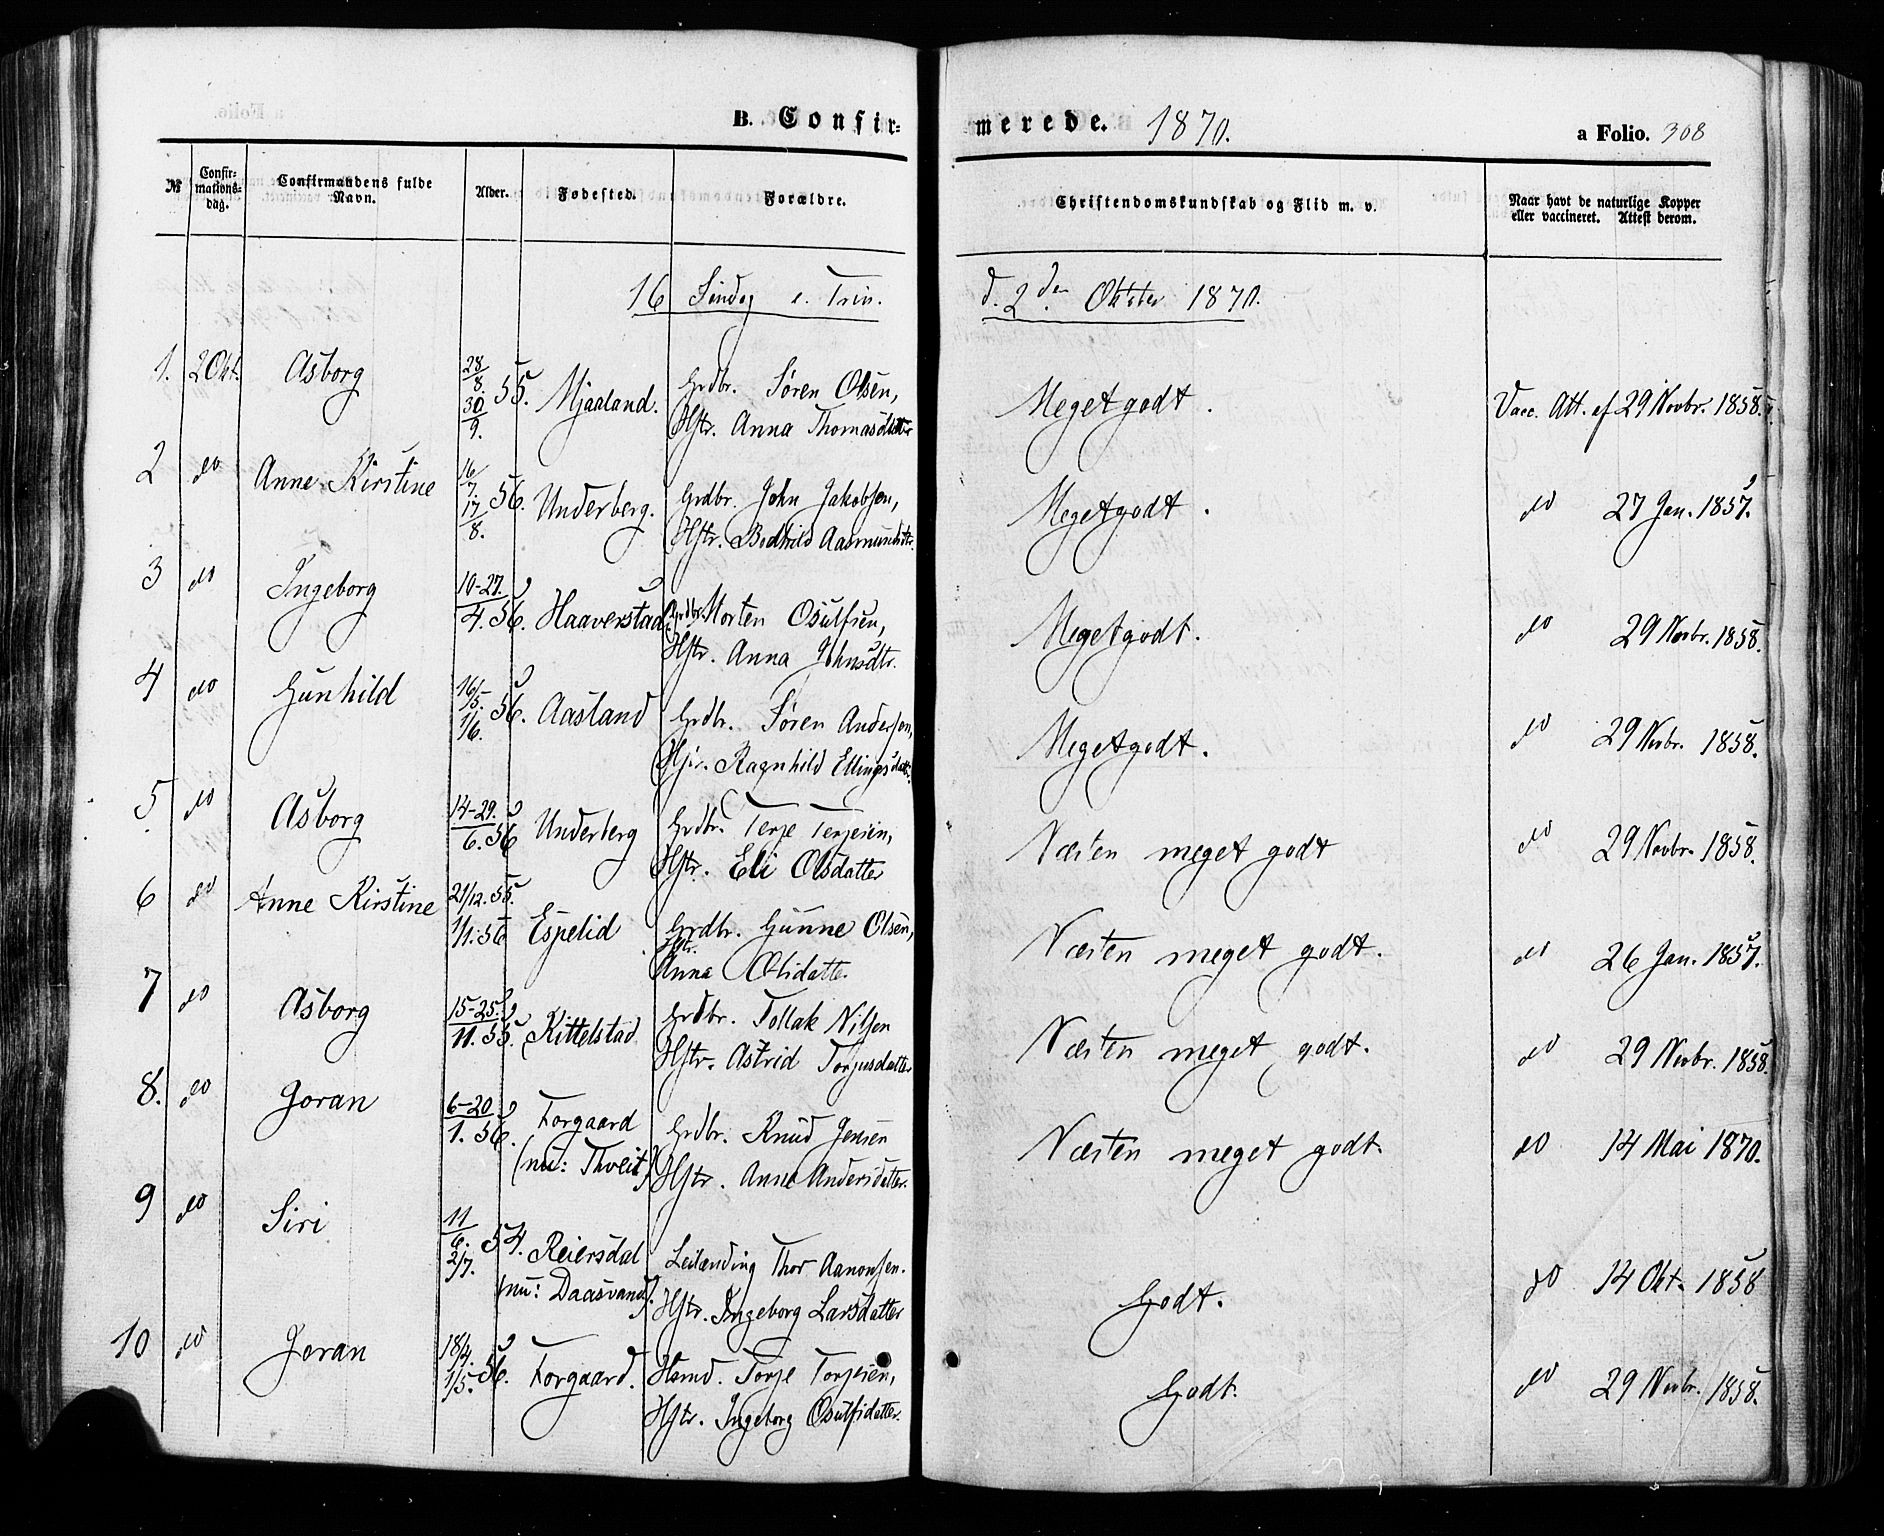 B. Confir-
merede. 1870.
a Folio. 308
№
Confir-
mations-
dag.
Confirmandens fulde
Navn.
Alder.
Fødested.
Forældre.
Christendomskundskab og Flid m. v.
Naar havt de naturlige Kopper
eller vaccineret. Attest derom.
16 Søndag e. Trin.
d. 2den Oktober 1870.
1. 2 Okt. Asborg 28/8. 30/9. 55. Mjaaland. Grdbr. Søren Olsen,
Hstr. Anna Thomasdatter
Megetgodt. Vacc. Att. af 29 Novbr. 1858.
2 do Anne Kirstine 16/7. 17/8. 56. Underberg. Grdbr. John Jakobsen,
Hstr. Bodhild Aasmundsdtr.
Megetgodt. do 27 Jan. 1857.
3 do Ingeborg 10-27./4. 56. Haaverstad Grdbr. Morten Osulfsen,
Hstr. Anna Johnsdtr.
Megetgodt. do 29 Novbr. 1858.
4 do Gunhild 16/5. 1/6. 56. Aasland Grdbr. Søren Andersen,
Hstr. Ragnhild Ellingsdatter.
Megetgodt. do 29 Novbr. 1858.
5. do Asborg 14-29./6. 56 Underberg Grdbr. Terje Terjesen,
Hstr. Eli Olsdatter
Næsten meget godt do 29 Novbr. 1858.
6 do Anne Kirstine 21/12. 55. 1/1. 56 Espelid Grdbr. Gunne Olsen,
Hstr.
Anna Olsdatter
Næsten meget godt. do 26 Jan. 1857.
7 do Asborg 15-25./11. 55. Kittelstad Grdbr. Tollak Nilsen
Hstr. Astrid Torjusdatter
Næsten meget godt. do 29 Novbr. 1858.
8. do Joran 6-20/1. 56. Forgaard Grdbr. Knud Jensen
(nu: Thveit) Hstr. Anne Andersdatter.
Næsten meget godt. do 14 Mai 1870.
9 do Siri 11/6. 2/7. 54. Reiersdal Leilænding Thor Aanonsen.
(nu: Daasvand). Hstr. Ingeborg Larsdatter
Godt. do 14 Okt. 1858
10 do Joran 18/4. 1/5. 56. Forgaard. Hsmd. Torje Torjesen,
Hstr. Ingeborg Osulfsdatter.
Godt. do 29 Novbr. 1858.